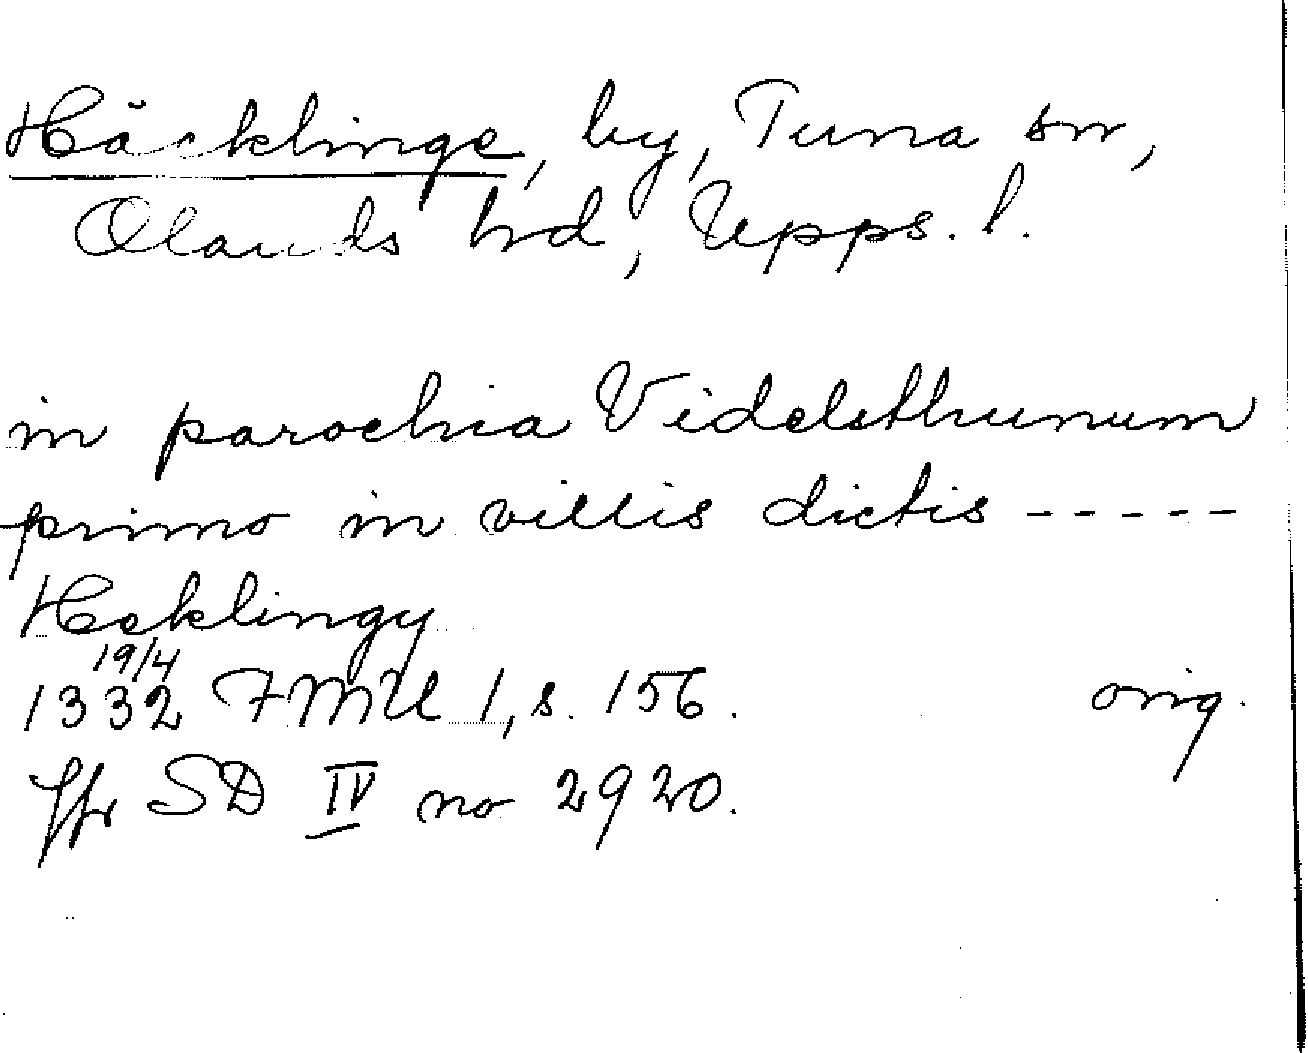 Häcklinge, by, Tuna sn,
Olands hrd, Upps. l.
in parochia Videlsthunum
primo in villis dictis -----
Heklingy
19/4
1332 FMU 1, s. 156. orig.
Jfr SD IV no 2920.